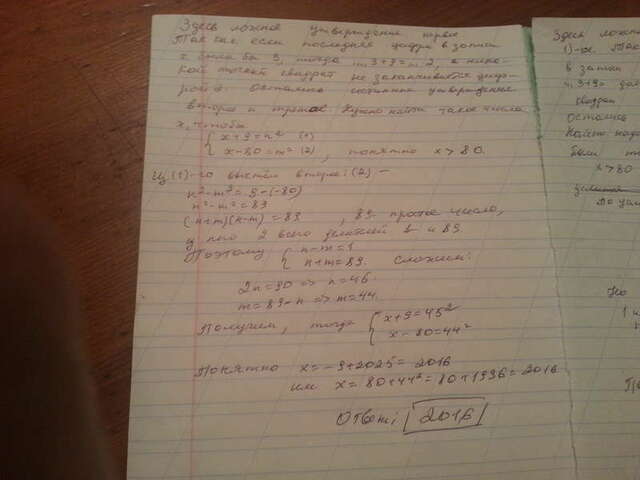 Здесь ложное утверждение первое
Так как если последняя цифра в записи
x была бы 3, тогда ...3+9=...2, а ника-
кой точный квадрат не заканчивается циф-
рой 2. Остались истинные утверждение
второе и третее. Нужно найти такое число
x, чтобы
{ x+9=n² (1)
x-80=m² (2), понятно x>80.
Из (1)-го вычтем второе: (2) -
n²-m²=9-(-80)
n²-m²=89
(n+m)(n-m)=89, 89- простое число,
у него 2 всего делителей 1 и 89.
Поэтому { n-m=1
n+m=89. Сложим:
2n=90 => n=45
m=89-n => m=44.
Получим, тогда { x+9=45²
x-80=44²
Понятно x=-9+2025=2016
или x=80+44²=80+1936=2016
Ответ: 2016
Здесь ложно
1)-ое. Так
в записи
...3+9=
квадрат
Остались
были
x>80
Но
1